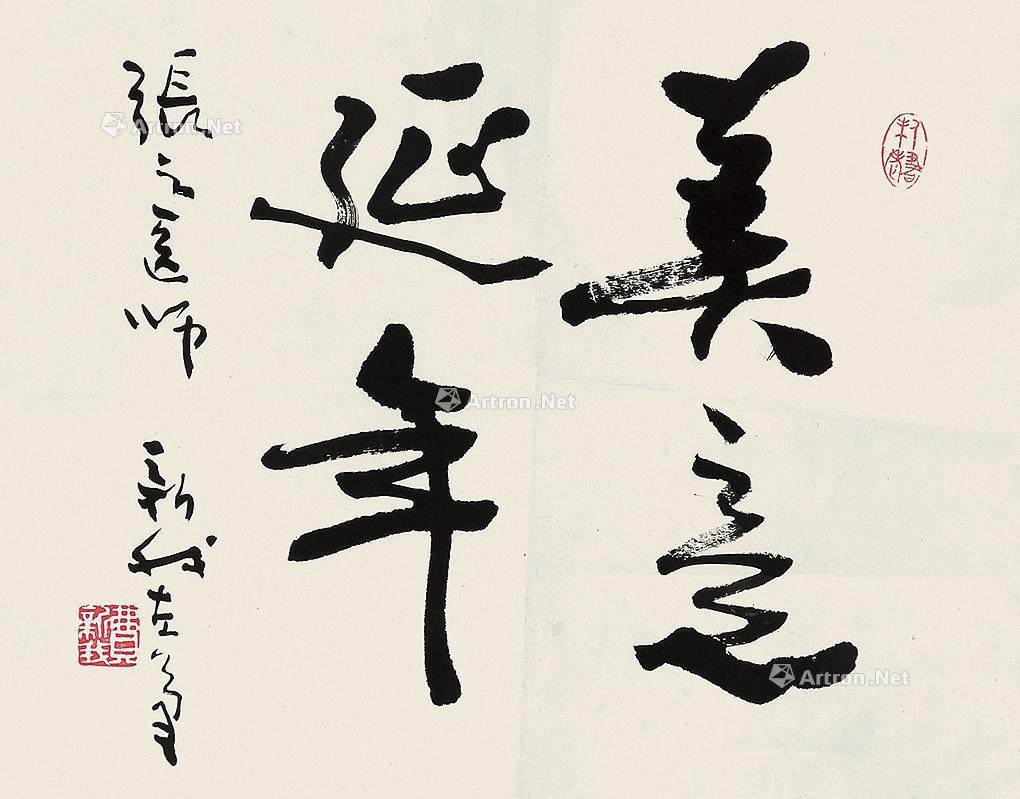 美意
延年
張 医师
新我左筆
費新我
Artron.Net
Artron.Net
Artron.Net